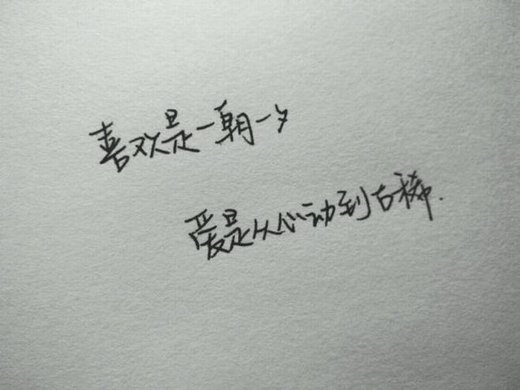 喜欢是一朝一夕
爱是从心动到古稀.